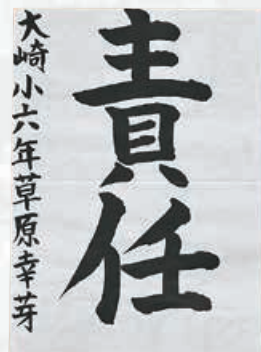 責任
大崎小六年草原幸芽